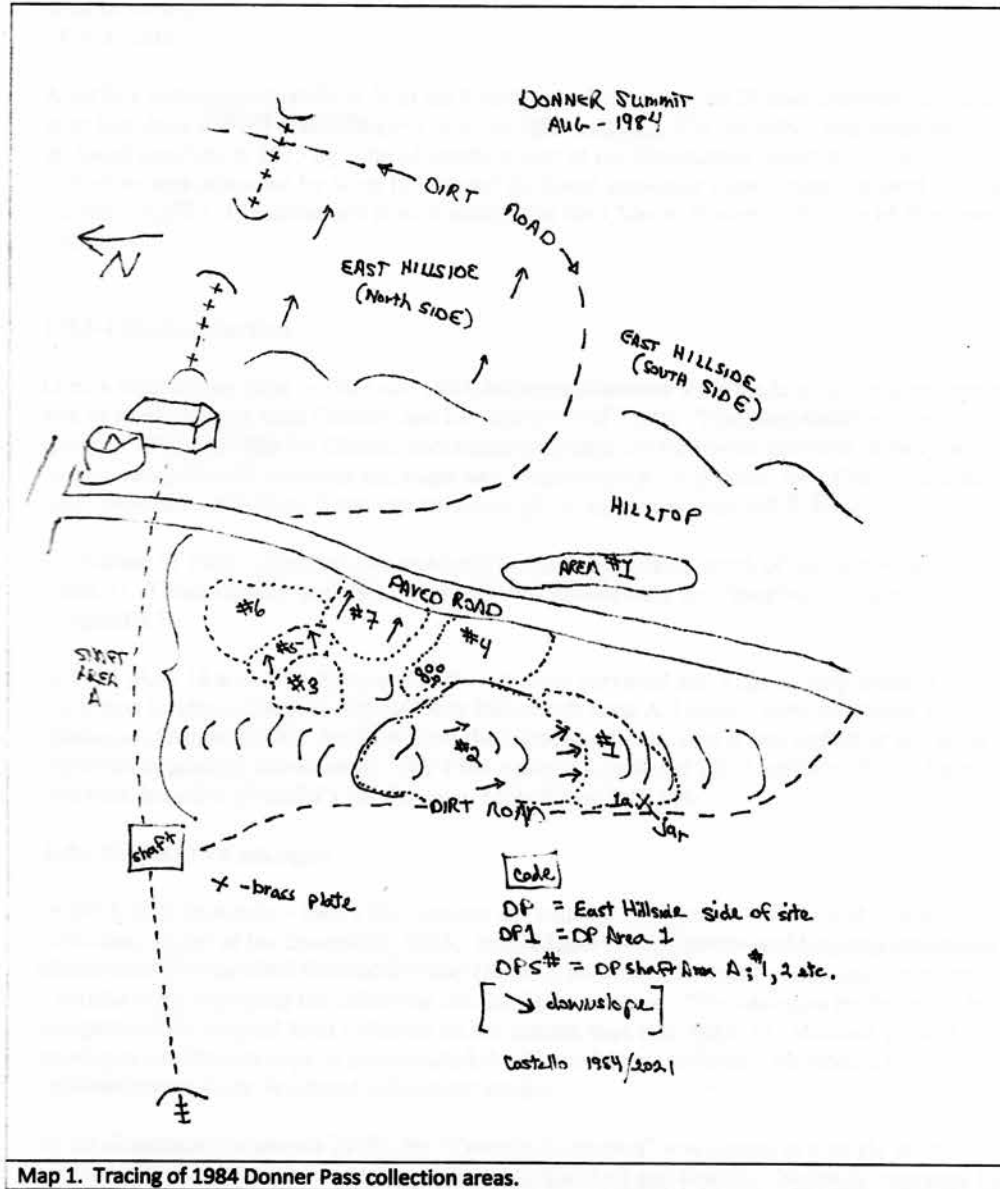 DONNER SUMMIT
AUG - 1984
DIRT
ROAD
N
EAST HILLSIDE
(North SIDE)
EAST HILLSIDE
(SOUTH SIDE)
HILLTOP
AREA #1
PAVED ROAD
#6
#7
#4
#5
#3
SHAFT
AREA
A
#2
#1
1a X
Jar
DIRT ROAD
shaft
X - brass plate
code
DP = East Hillside side of site
DP1 = DP Area 1
DPS# = DP shaft Area A; #1, 2 etc.
[↘ downslope]
Costello 1984/2021
Map 1. Tracing of 1984 Donner Pass collection areas.